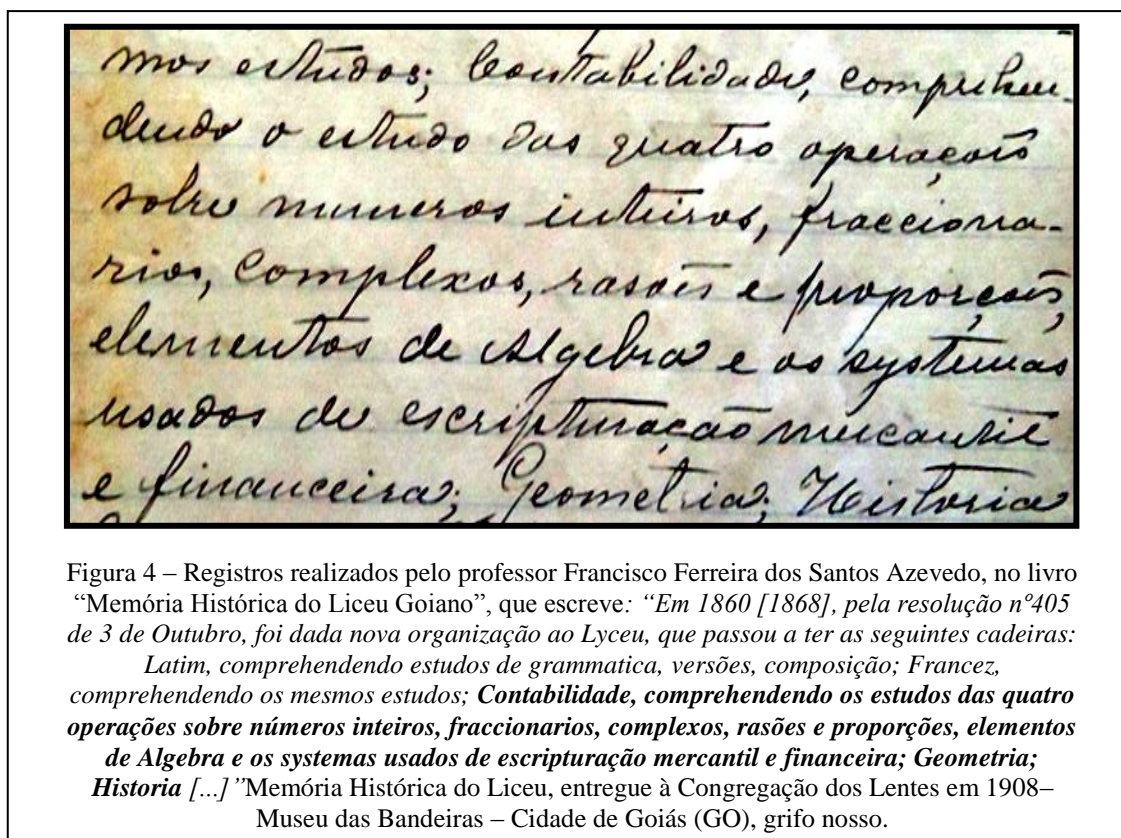 mos estudos; Contabilidade, comprehen-
dendo o estudo das quatro operações
sobre numeros inteiros, fracciona-
rios, complexos, rasões e proporções,
elementos de Algebra e os systemas
usados de escripturação mercantil
e financeira; Geometria; Historia
Figura 4 – Registros realizados pelo professor Francisco Ferreira dos Santos Azevedo, no livro
“Memória Histórica do Liceu Goiano”, que escreve: “Em 1860 [1868], pela resolução nº405
de 3 de Outubro, foi dada nova organização ao Lyceu, que passou a ter as seguintes cadeiras:
Latim, comprehendendo estudos de grammatica, versões, composição; Francez,
comprehendendo os mesmos estudos; Contabilidade, comprehendendo os estudos das quatro
operações sobre números inteiros, fraccionarios, complexos, rasões e proporções, elementos
de Algebra e os systemas usados de escripturação mercantil e financeira; Geometria;
Historia [...]”Memória Histórica do Liceu, entregue à Congregação dos Lentes em 1908–
Museu das Bandeiras – Cidade de Goiás (GO), grifo nosso.